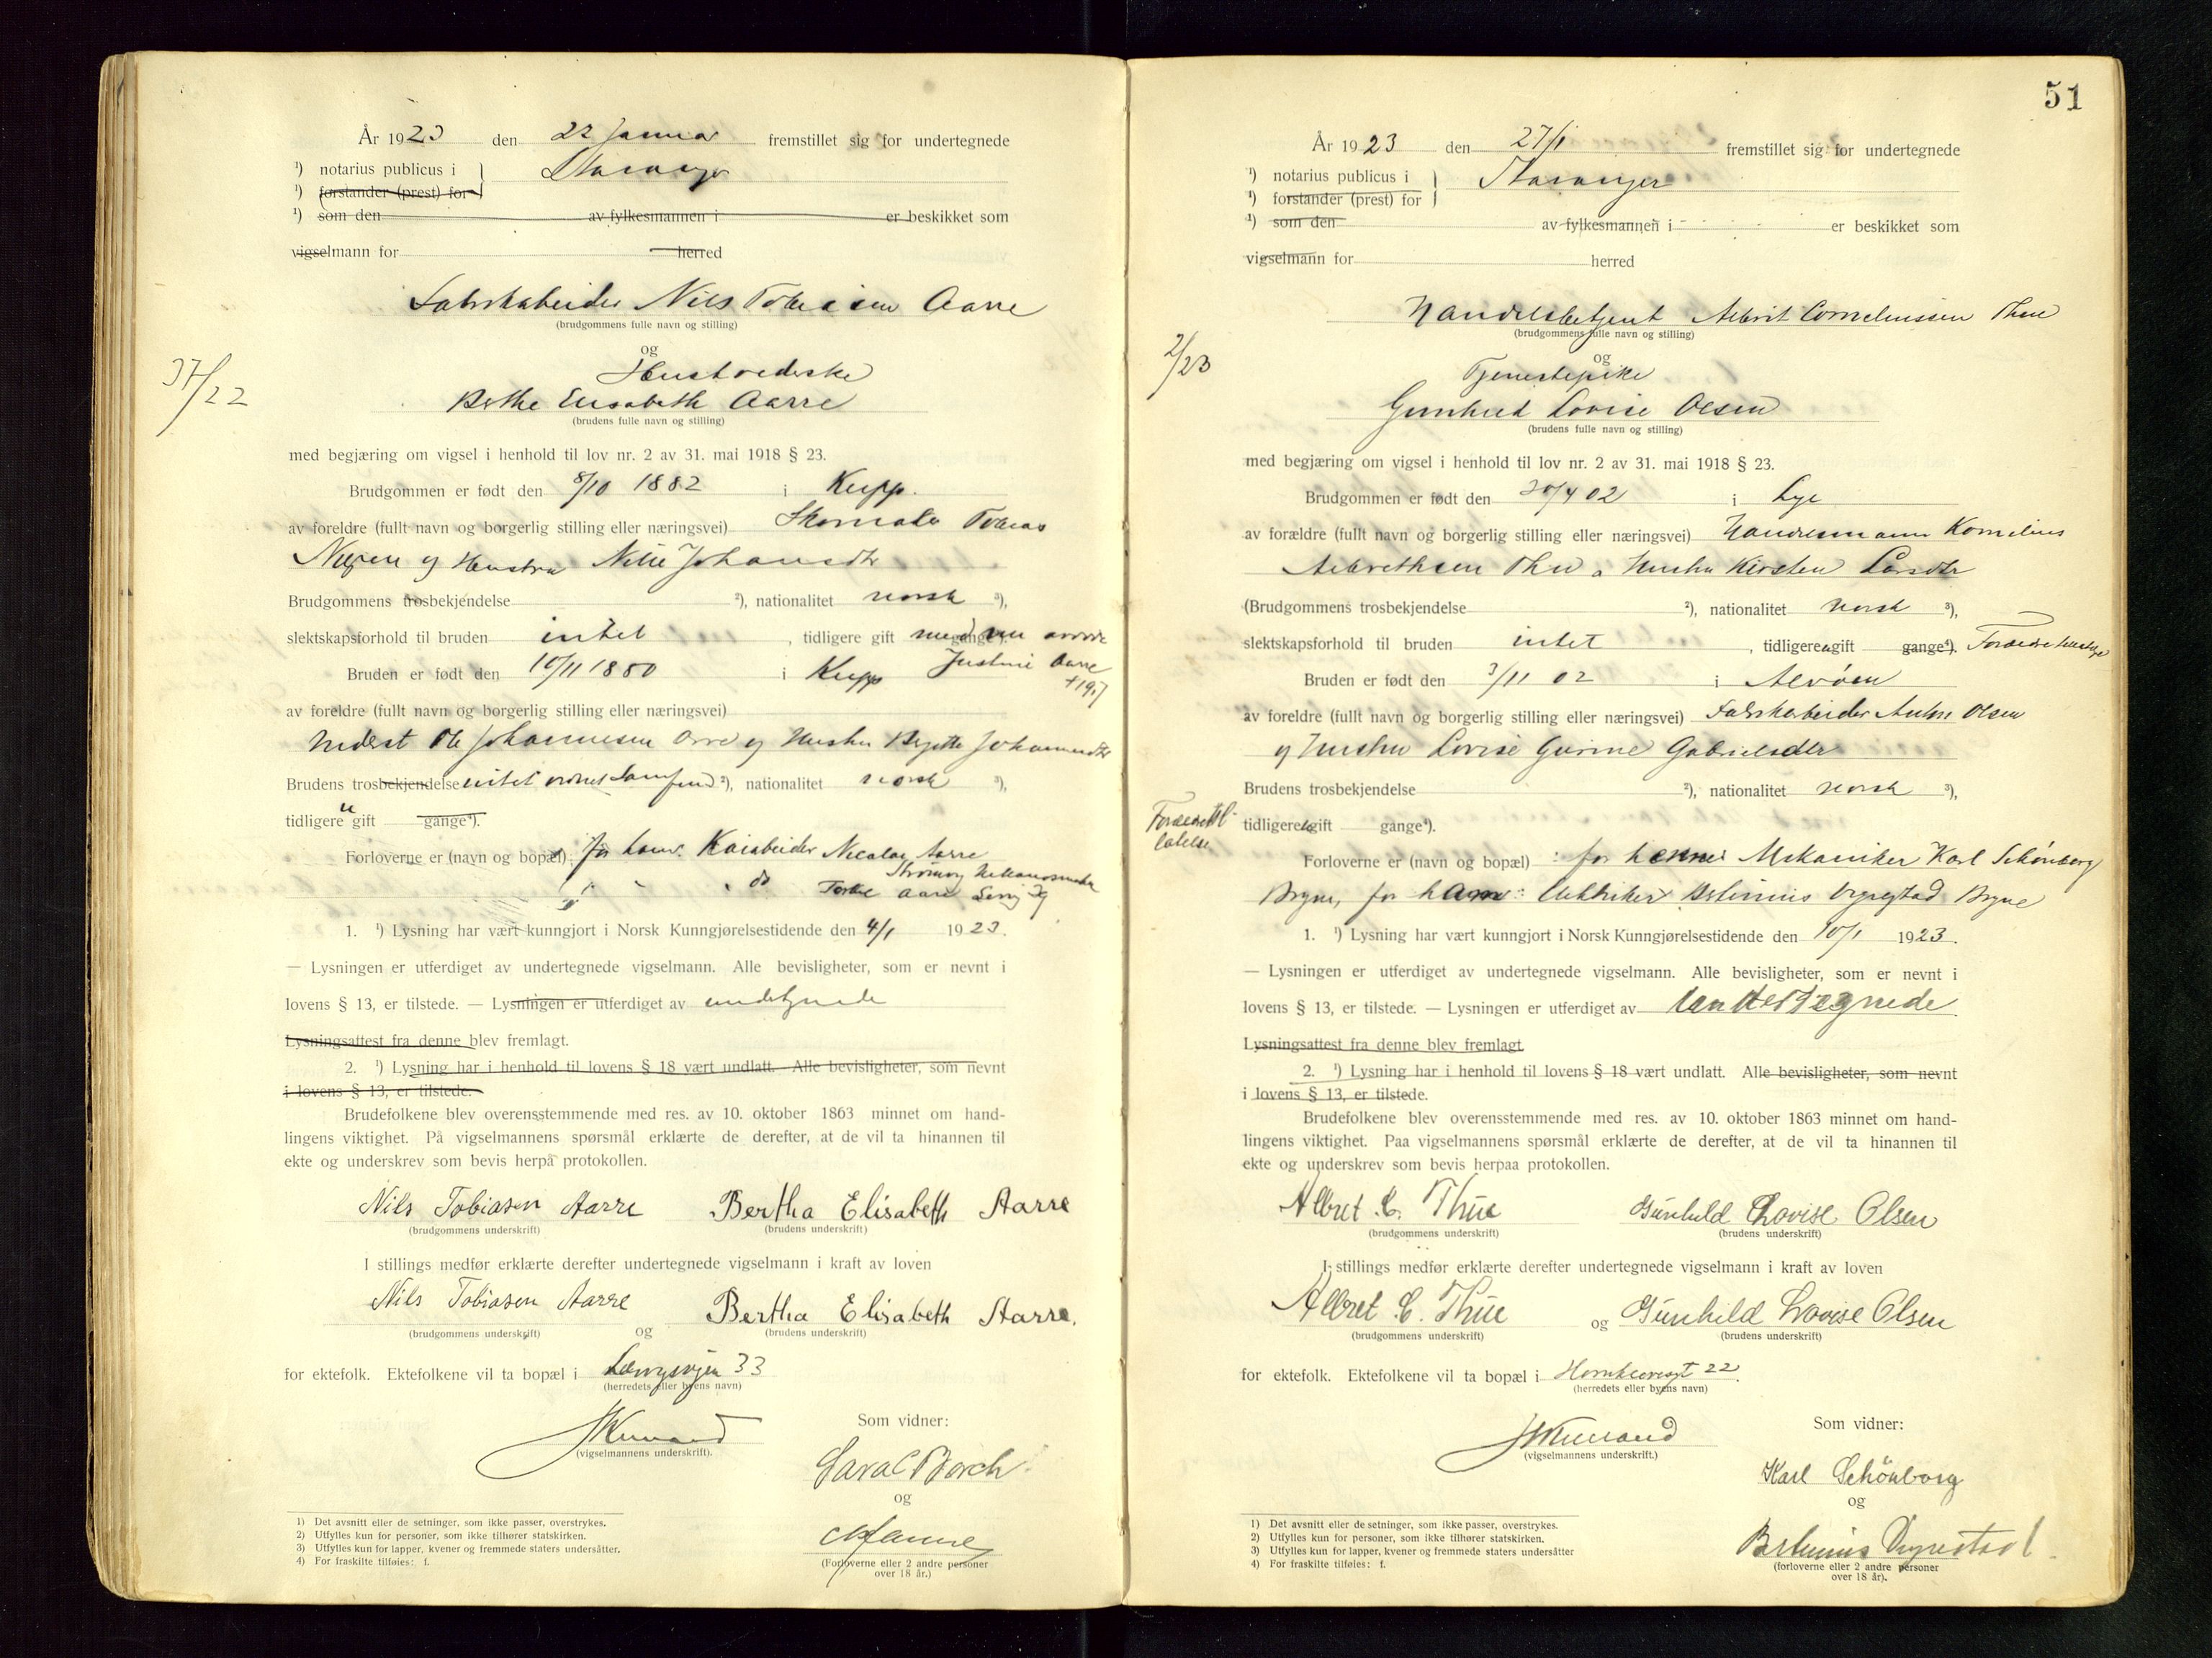 År 1923 den 22 Januar fremstillet sig for undertegnede
¹) notarius publicus i } Stavanger
¹) forstander (prest) for
¹) som den av fylkesmannen i er beskikket som
vigselmann for herred
Nils Tobiasen Aarre
(brudgommens fulle navn og stilling)
og
37/22
Berthe Elisabeth Aarre
(brudens fulle navn og stilling)
med begjæring om vigsel i henhold til lov nr. 2 av 31. mai 1918 § 23.
Brudgommen er født den 8/10 1882 i Kupp.
av foreldre (fullt navn og borgerlig stilling eller næringsvei) Skomaker Tobias
og Hustru Johansdtr
Brudgommens trosbekjendelse ²), nationalitet norsk ³),
slektskapsforhold til bruden intet, tidligere gift
Bruden er født den 10/11 1880 i Kupp Justine Aarre
av foreldre (fullt navn og borgerlig stilling eller næringsvei)
Ole Johannesen Aarre og Hustru
Brudens trosbekjendelse ²), nationalitet norsk ³),
tidligere u gift gange⁴).
Forloverne er (navn og bopæl) for ham: Nicolay Aarre
do Aarre
1. ¹) Lysning har vært kunngjort i Norsk Kunngjørelsestidende den 4/1 1923.
— Lysningen er utferdiget av undertegnede vigselmann. Alle bevisligheter, som er nevnt i
lovens § 13, er tilstede. — Lysningen er utferdiget av undertegnede
Lysningsattest fra denne blev fremlagt.
2. ¹) Lysning har i henhold til lovens § 18 vært undlatt. Alle bevisligheter, som nevnt
i lovens § 13, er tilstede.
Brudefolkene blev overensstemmende med res. av 10. oktober 1863 minnet om hand-
lingens viktighet. På vigselmannens spørsmål erklærte de derefter, at de vil ta hinannen til
ekte og underskrev som bevis herpå protokollen.
Nils Tobiasen Aarre Bertha Elisabeth Aarre
(brudgommens underskrift) (brudens underskrift)
I stillings medfør erklærte derefter undertegnede vigselmann i kraft av loven
Nils Tobiasen Aarre Bertha Elisabeth Aarre.
(brudgommens underskrift) og (brudens underskrift)
for ektefolk. Ektefolkene vil ta bopæl i 33
(herredets eller byens navn)
Som vidner:
(vigselmannens underskrift).
Sara C Borch
og
(Forloverne eller 2 andre personer
over 18 år.)
1) Det avsnitt eller de setninger, som ikke passer, overstrykes.
2) Utfylles kun for personer, som ikke tilhører statskirken.
3) Utfylles kun for lapper, kvener og fremmede staters undersåtter.
4) For fraskilte tilføies: f.
51
År 1923 den 27/1 fremstillet sig for undertegnede
¹) notarius publicus i } Stavanger
¹) forstander (prest) for
¹) som den av fylkesmannen i er beskikket som
vigselmann for herred
Handelsbetjent Albrit Corneliussen Thue
(brudgommens fulle navn og stilling)
2/23
og
Tjenestepike
Gunhild Lovise Olsen
(brudens fulle navn og stilling)
med begjæring om vigsel i henhold til lov nr. 2 av 31. mai 1918 § 23.
Brudgommen er født den 30/4 02 i Lye
av forældre (fullt navn og borgerlig stilling eller næringsvei) Handelsmann Kornelius
Albrethsen Thu og Hustru Kirsten Larsdtr
(Brudgommens trosbekjendelse ²), nationalitet norsk ³),
slektskapsforhold til bruden intet, tidligere u gift gange⁴).
Bruden er født den 3/11 02 i Alvøen
av foreldre (fullt navn og borgerlig stilling eller næringsvei) Fabrikarbeider Olsen
og Hustru Lovise Gurine Gabrielsdtr
Brudens trosbekjendelse ²), nationalitet norsk ³),
tidligere u gift gange⁴).
Forloverne er (navn og bopæl): for henne: Mekaniker Karl Schönborg
Bryne, for ham: Bryne
1. ¹) Lysning har vært kunngjort i Norsk Kunngjørelsestidende den 10/1 1923.
— Lysningen er utferdiget av undertegnede vigselmann. Alle bevisligheter, som er nevnt i
lovens § 13, er tilstede. — Lysningen er utferdiget av undertegnede.
Lysningsattest fra denne blev fremlagt
2. ¹) Lysning har i henhold til lovens § 18 vært undlatt. Alle bevisligheter, som nevnt
i lovens § 13, er tilstede.
Brudefolkene blev overensstemmende med res. av 10. oktober 1863 minnet om hand-
lingens viktighet. Paa vigselmannens spørsmål erklærte de derefter, at de vil ta hinannen til
ekte og underskrev som bevis herpaa protokollen.
Albret C. Thue Gunhild Lovise Olsen
(brudgommens underskrift) (brudens underskrift)
I stillings medfør erklærte derefter undertegnede vigselmann i kraft av loven
Albret C. Thue og Gunhild Lovise Olsen
(brudgommens underskrift) (brudens underskrift)
for ektefolk. Ektefolkene vil ta bopæl i 22.
(herredets eller byens navn)
Som vidner:
(vigselmannens underskrift.)
Karl Schönborg
og
(forloverne eller 2 andre personer
over 18 år).
1) Det avsnitt eller de setninger, som ikke passer, overstrykes.
2) Utfylles kun for personer, som ikke tilhører statskirken.
3) Utfylles kun for lapper, kvener og fremmede staters undersåtter
4) For fraskilte tilføies: f.